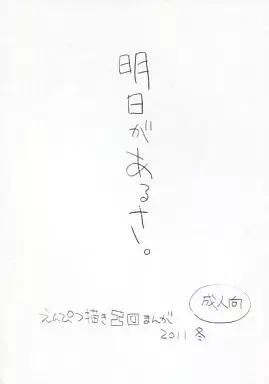 明日があるさ。
成人向
えんぴつ描き呂回まんが
2011 冬